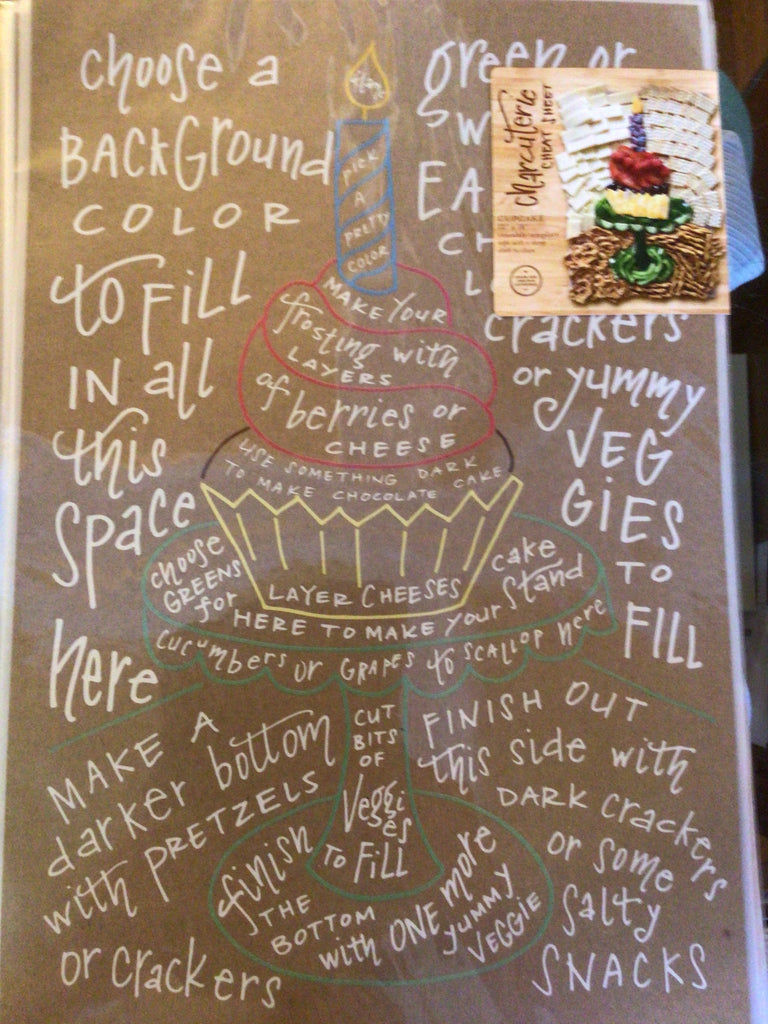 choose a
BACKGROUND
COLOR
to FILL
IN all
this
Space
here
green or
W
EA
CH
L
crackers
or yummy
VEG
GIES
TO
FILL
charcuterie
CHEAT SHEET
CUPCAKE
flame
PICK
A
PRETTY
COLOR
MAKE YOUR
frosting with
LAYERS
of berries or
CHEESE
USE SOMETHING DARK
TO MAKE CHOCOLATE CAKE
LAYER CHEESES
choose
GREENS
for
cake
Stand
HERE TO MAKE YOUR
CUCUMBERS OR GRAPES to SCALLOP here
MAKE A
darker bottom
with PRETZELS
or crackers
CUT
BITS
OF
Veggi
es
TO FILL
FINISH OUT
this side with
DARK crackers
or some
Salty
SNACKS
finish
THE
BOTTOM
with ONE more
yummy
VEGGIE